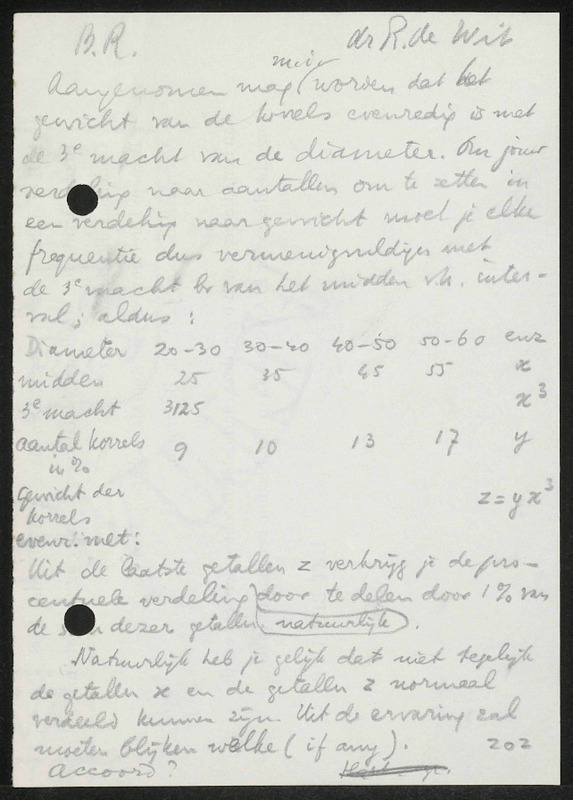 B.R. dr R. de Wit
Aangenomen mag worden dat het
gewicht van de korrels evenredig is met
de 3e macht van de diameter. Om jouw
verdeling naar aantallen om te zetten in
een verdeling naar gewicht moet je elke
frequentie dus vermenigvuldigen met
de 3e macht van het midden v.h. inter-
val; aldus:
Diameter 20-30 30-40 40-50 50-60 enz
midden 25 35 45 55 x
3e macht 3125 x³
aantal korrels 9 10 13 17 y
in %
gewicht der z = y x³
korrels
evenr. met:
Uit de laatste getallen z verkrijg je de pro-
centuele verdeling door te delen door 1% van
de som dezer getallen natuurlijk.
Natuurlijk heb je gelijk dat niet tegelijk
de getallen x en de getallen z normaal
verdeeld kunnen zijn. Uit de ervaring zal
moeten blijken welke (if any).
Accoord? 202